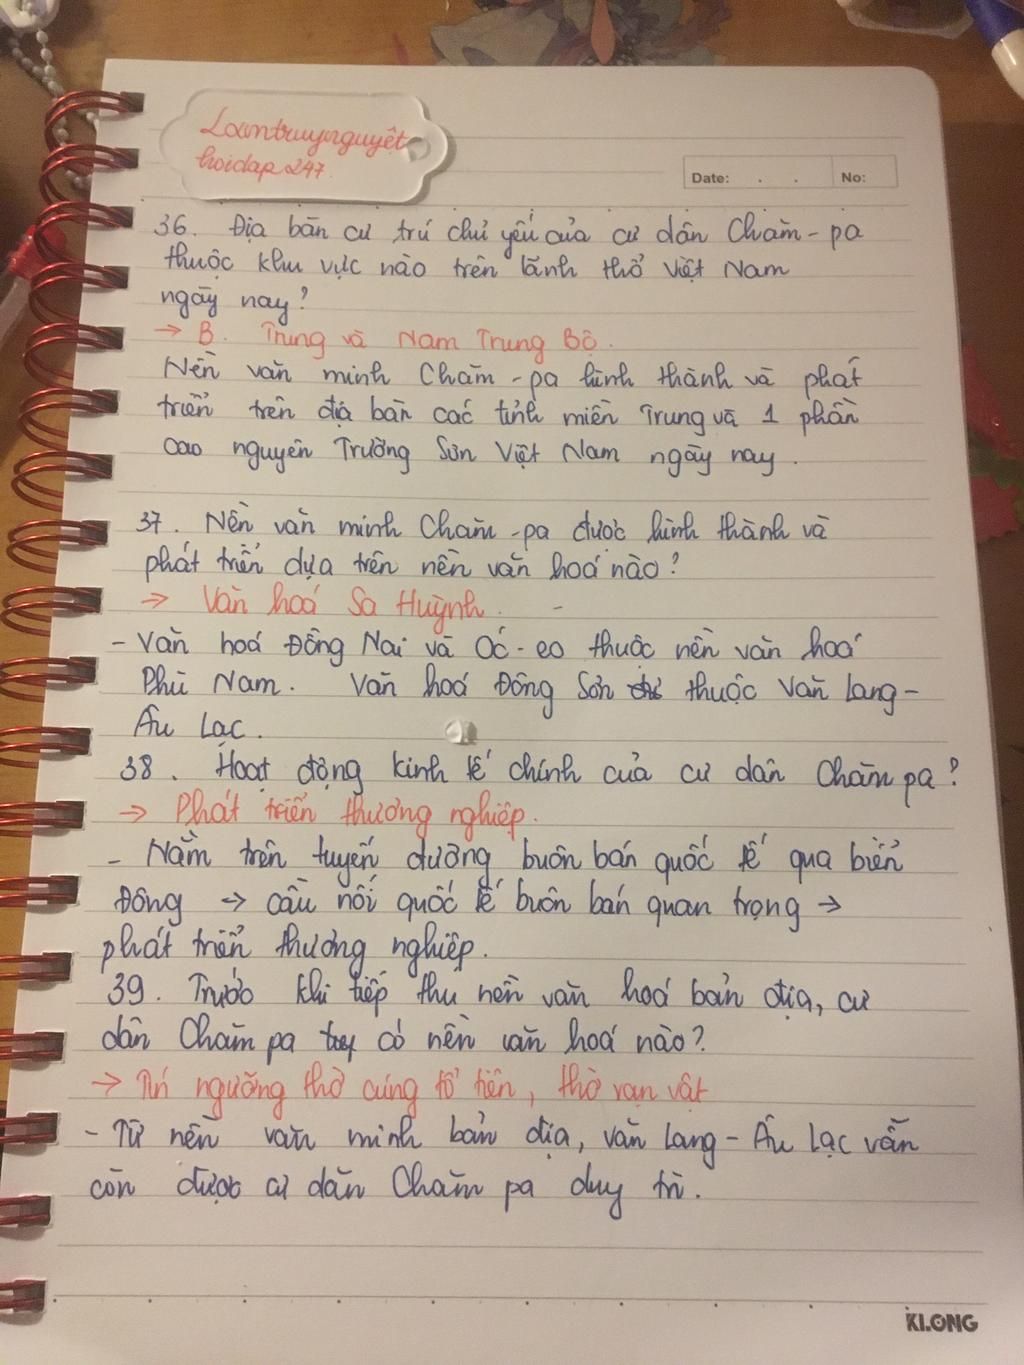 Lamtruynguyệt
hoidap247.
Date: . . No:
36. Địa bàn cư trú chủ yếu của cư dân Chăm-pa
thuộc khu vực nào trên lãnh thổ Việt Nam
ngày nay?
→ B. Trung và Nam Trung Bộ.
Nền văn minh Chăm-pa hình thành và phát
triển trên địa bàn các tỉnh miền Trung và 1 phần
cao nguyên Trường Sơn Việt Nam ngày nay.
37. Nền văn minh Chăm-pa được hình thành và
phát triển dựa trên nền văn hoá nào?
→ Văn hoá Sa Huỳnh.
- Văn hoá Đồng Nai và Óc-eo thuộc nền văn hoá
Phù Nam. Văn hoá Đông Sơn thuộc Văn Lang-
Âu Lạc.
38. Hoạt động kinh tế chính của cư dân Chăm pa?
→ Phát triển thương nghiệp.
- Nằm trên tuyến đường buôn bán quốc tế qua biển
Đông → cầu nối quốc tế buôn bán quan trọng →
phát triển thương nghiệp.
39. Trước khi tiếp thu nền văn hoá bản địa, cư
dân Chăm pa có nền văn hoá nào?
→ Tín ngưỡng thờ cúng tổ tiên, thờ vạn vật
- Từ nền văn minh bản địa, văn Lang-Âu Lạc vẫn
còn được cư dân Chăm pa duy trì.
KLONG